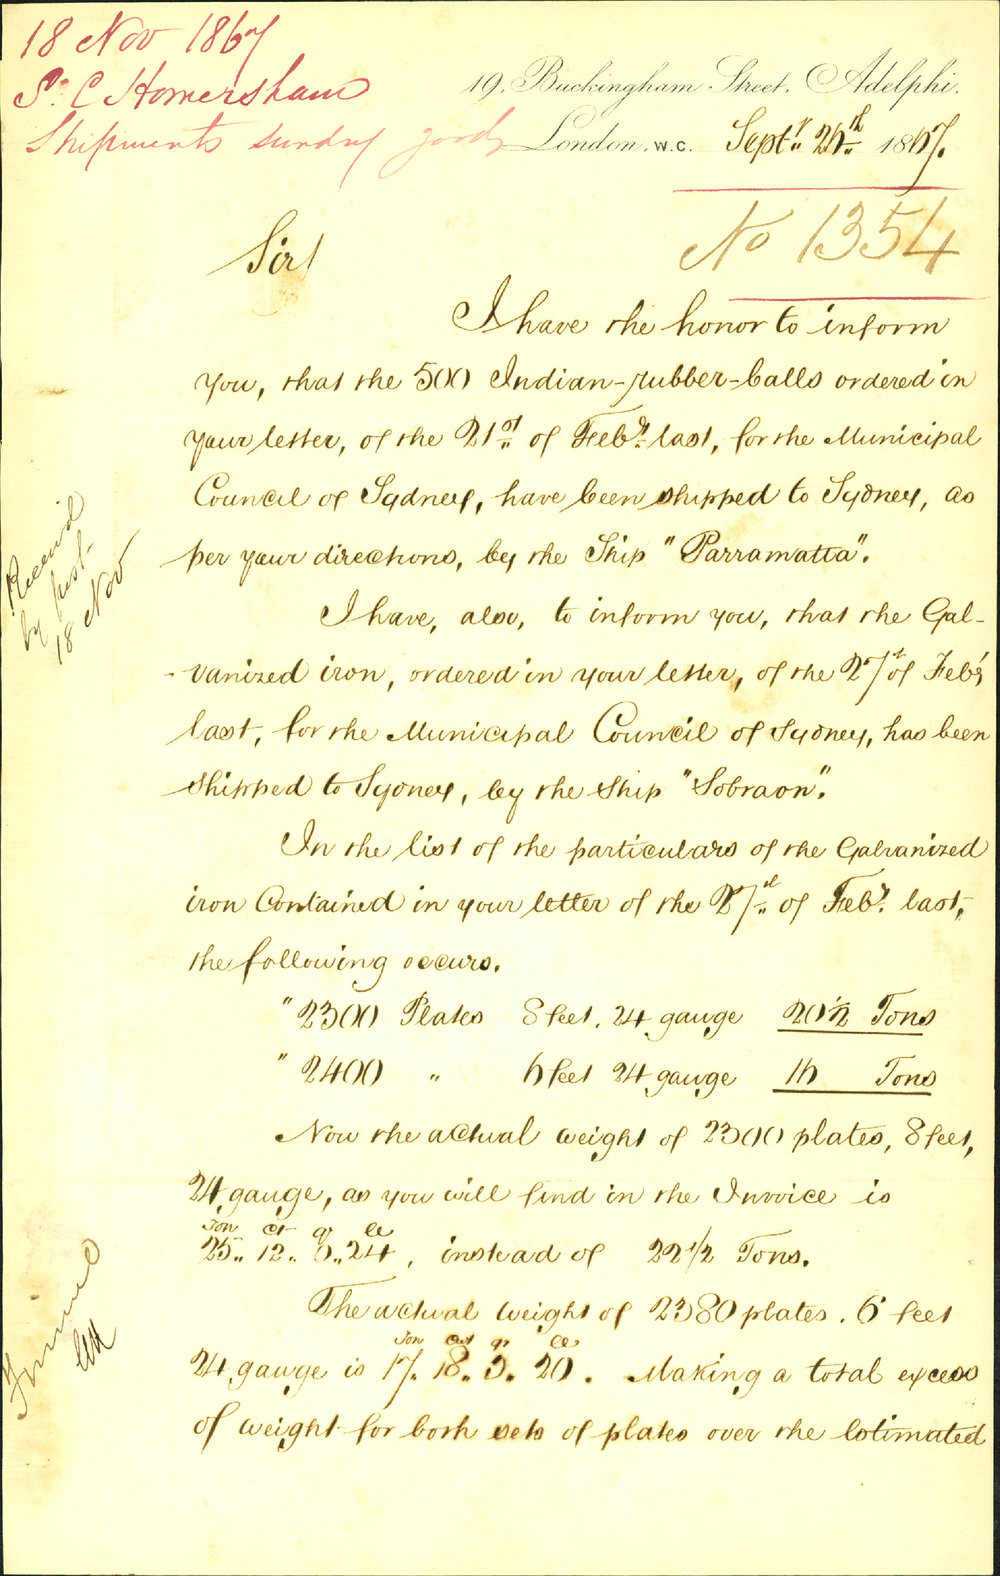 18 Nov 1867
S. C Homersham
Shipments sundry goods
19, Buckingham Street, Adelphi,
London, W.C. Septr. 26th 1867.
No 1354
Sir/
I have the honor to inform
you, that the 500 Indian-rubber-balls ordered in
your letter, of the 21st of Feby. last, for the Municipal
Council of Sydney, have been shipped to Sydney, as
per your directions, by the Ship "Parramatta".
I have, also, to inform you, that the Gal-
-vanized iron, ordered in your letter, of the 27th of Feby
last, for the Municipal Council of Sydney, has been
shipped to Sydney, by the Ship "Sobraon".
In the list of the particulars of the Galvanized
iron Contained in your letter of the 27th of Feby. last,
the following occurs.
"2300 Plates 8 feet, 24 gauge 20 1/2 Tons
"2400 " 6 feet 24 gauge 16 Tons
Now the actual weight of 2300 plates, 8 feet,
24 gauge, as you will find in the Invoice is
Ton ct q le
25.. 12.. 3.. 24, instead of 22 1/2 Tons.
The actual weight of 2380 plates. 6 feet
Ton cwt qr le
24 gauge is 17. 18. 3. 20. Making a total excess
of weight for both sets of plates over the Estimated
Received
by post
18 Nov